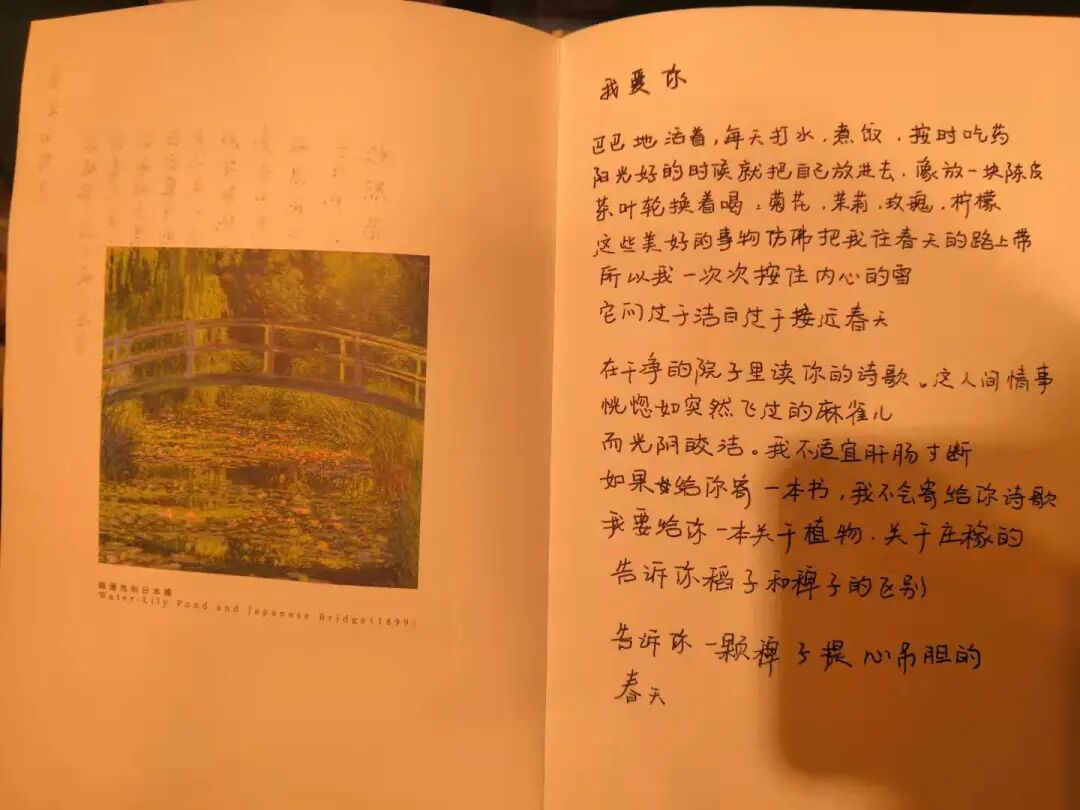 睡蓮池和日本橋
Water-Lily Pond and Japanese Bridge(1899)
我爱你
巴巴地活着，每天打水，煮饭，按时吃药
阳光好的时候就把自己放进去，像放一块陈皮
茶叶轮换着喝：菊花，茉莉，玫瑰，柠檬
这些美好的事物仿佛把我往春天的路上带
所以我一次次按住内心的雪
它们过于洁白过于接近春天
在干净的院子里读你的诗歌。这人间情事
恍惚如突然飞过的麻雀儿
而光阴皎洁。我不适宜肝肠寸断
如果给你寄一本书，我不会寄给你诗歌
我要给你一本关于植物，关于庄稼的
告诉你稻子和稗子的区别
告诉你一颗稗子提心吊胆的
春天